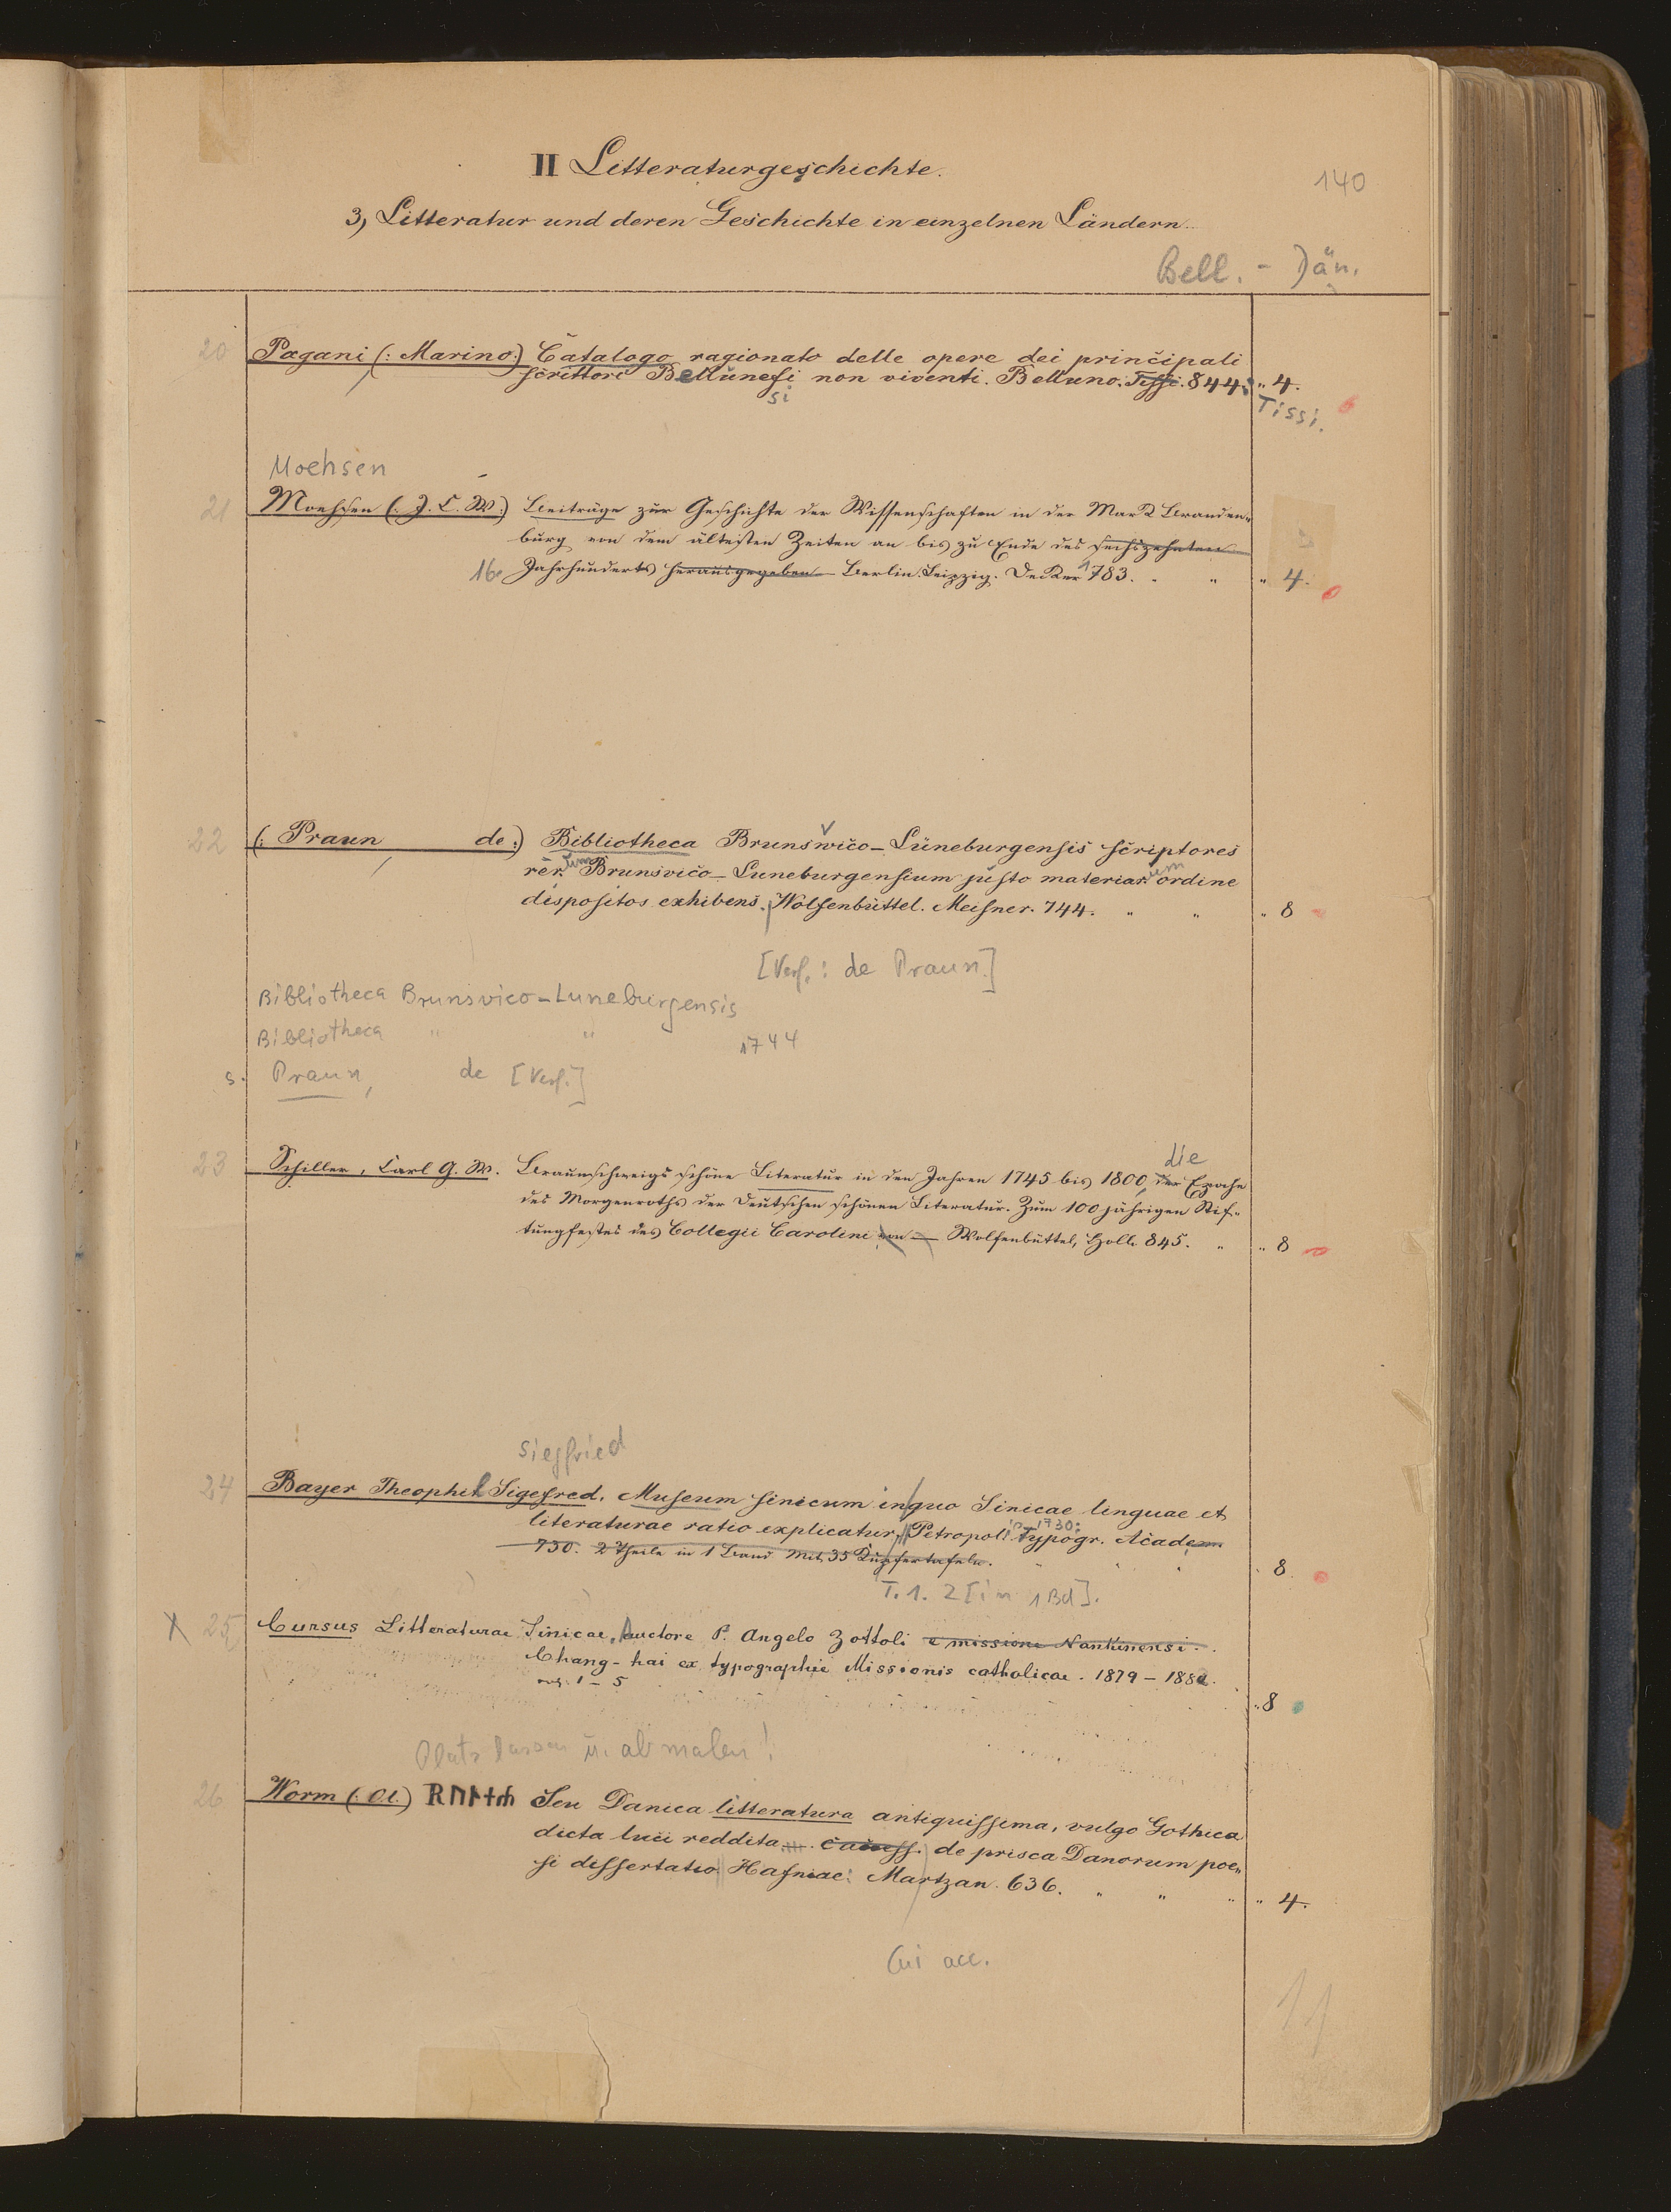 II Litteraturgeschichte.
140
3) Litteratur und deren Geschichte in einzelnen Ländern.
Bell. - Dän.
20 Pagani (: Marino:) Catalogo ragionato delle opere dei principali
scrittori Bellunesi non viventi. Belluno. Tissi. 844. " 4.
si
Tissi.
Moehsen
21 Moehsen (: J. C. W:) Beiträge zur Geschichte der Wissenschaften in der Mark Branden-
burg von den ältesten Zeiten an bis zu Ende des sechszehnten
16. Jahrhunderts herausgegeben Berlin. Leipzig. Decker 1783. " " " 4.
22 (: Praun de:) Bibliotheca Brunsvico-Lüneburgensis scriptores
rerum Brunsvico-Luneburgensium justo materiarum ordine
dispositos exhibens. Wolfenbüttel. Meisner. 744. " " " 8
[Verf.: de Praun.]
Bibliotheca Brunsvico-Luneburgensis
Bibliotheca " " 1744
s. Praun, de [Verf.]
die
23 Schiller, Carl G. W. Braunschweigs schöne Literatur in den Jahren 1745 bis 1800, der Epoche
des Morgenroths der deutschen schönen Literatur. Zum 100jährigen Stif-
tungfestes des Collegii Carolini von — Wolfenbüttel, Holle 845. " " 8
Siegfried
24 Bayer Theophil Sigefred. Museum sinicum in quo Sinicae linguae et
literaturae ratio explicatur, Petropoli typogr. Academ
1730.
730. 2 Theile in 1 Band mit 35 Kupfertafeln. 8.
T. 1. 2 [in 1 Bd].
X 25 Cursus Litteraturae Sinicae, auctore P. Angelo Zottoli e missione Nankinensi.
Chang-hai ex typographie Missionis catholicae. 1879-1882.
1-5
" 8
Platz lassen u. abmalen!
26 Worm (: Ol.) ᚱᚢᚾᛅᚼ Seu Danica litteratura antiquissima, vulgo Gothica
dicta luci reddita de prisca Danorum poe-
si dissertatio. Hafniae: Martzan. 636. " " " " 4.
Cui acc.
11